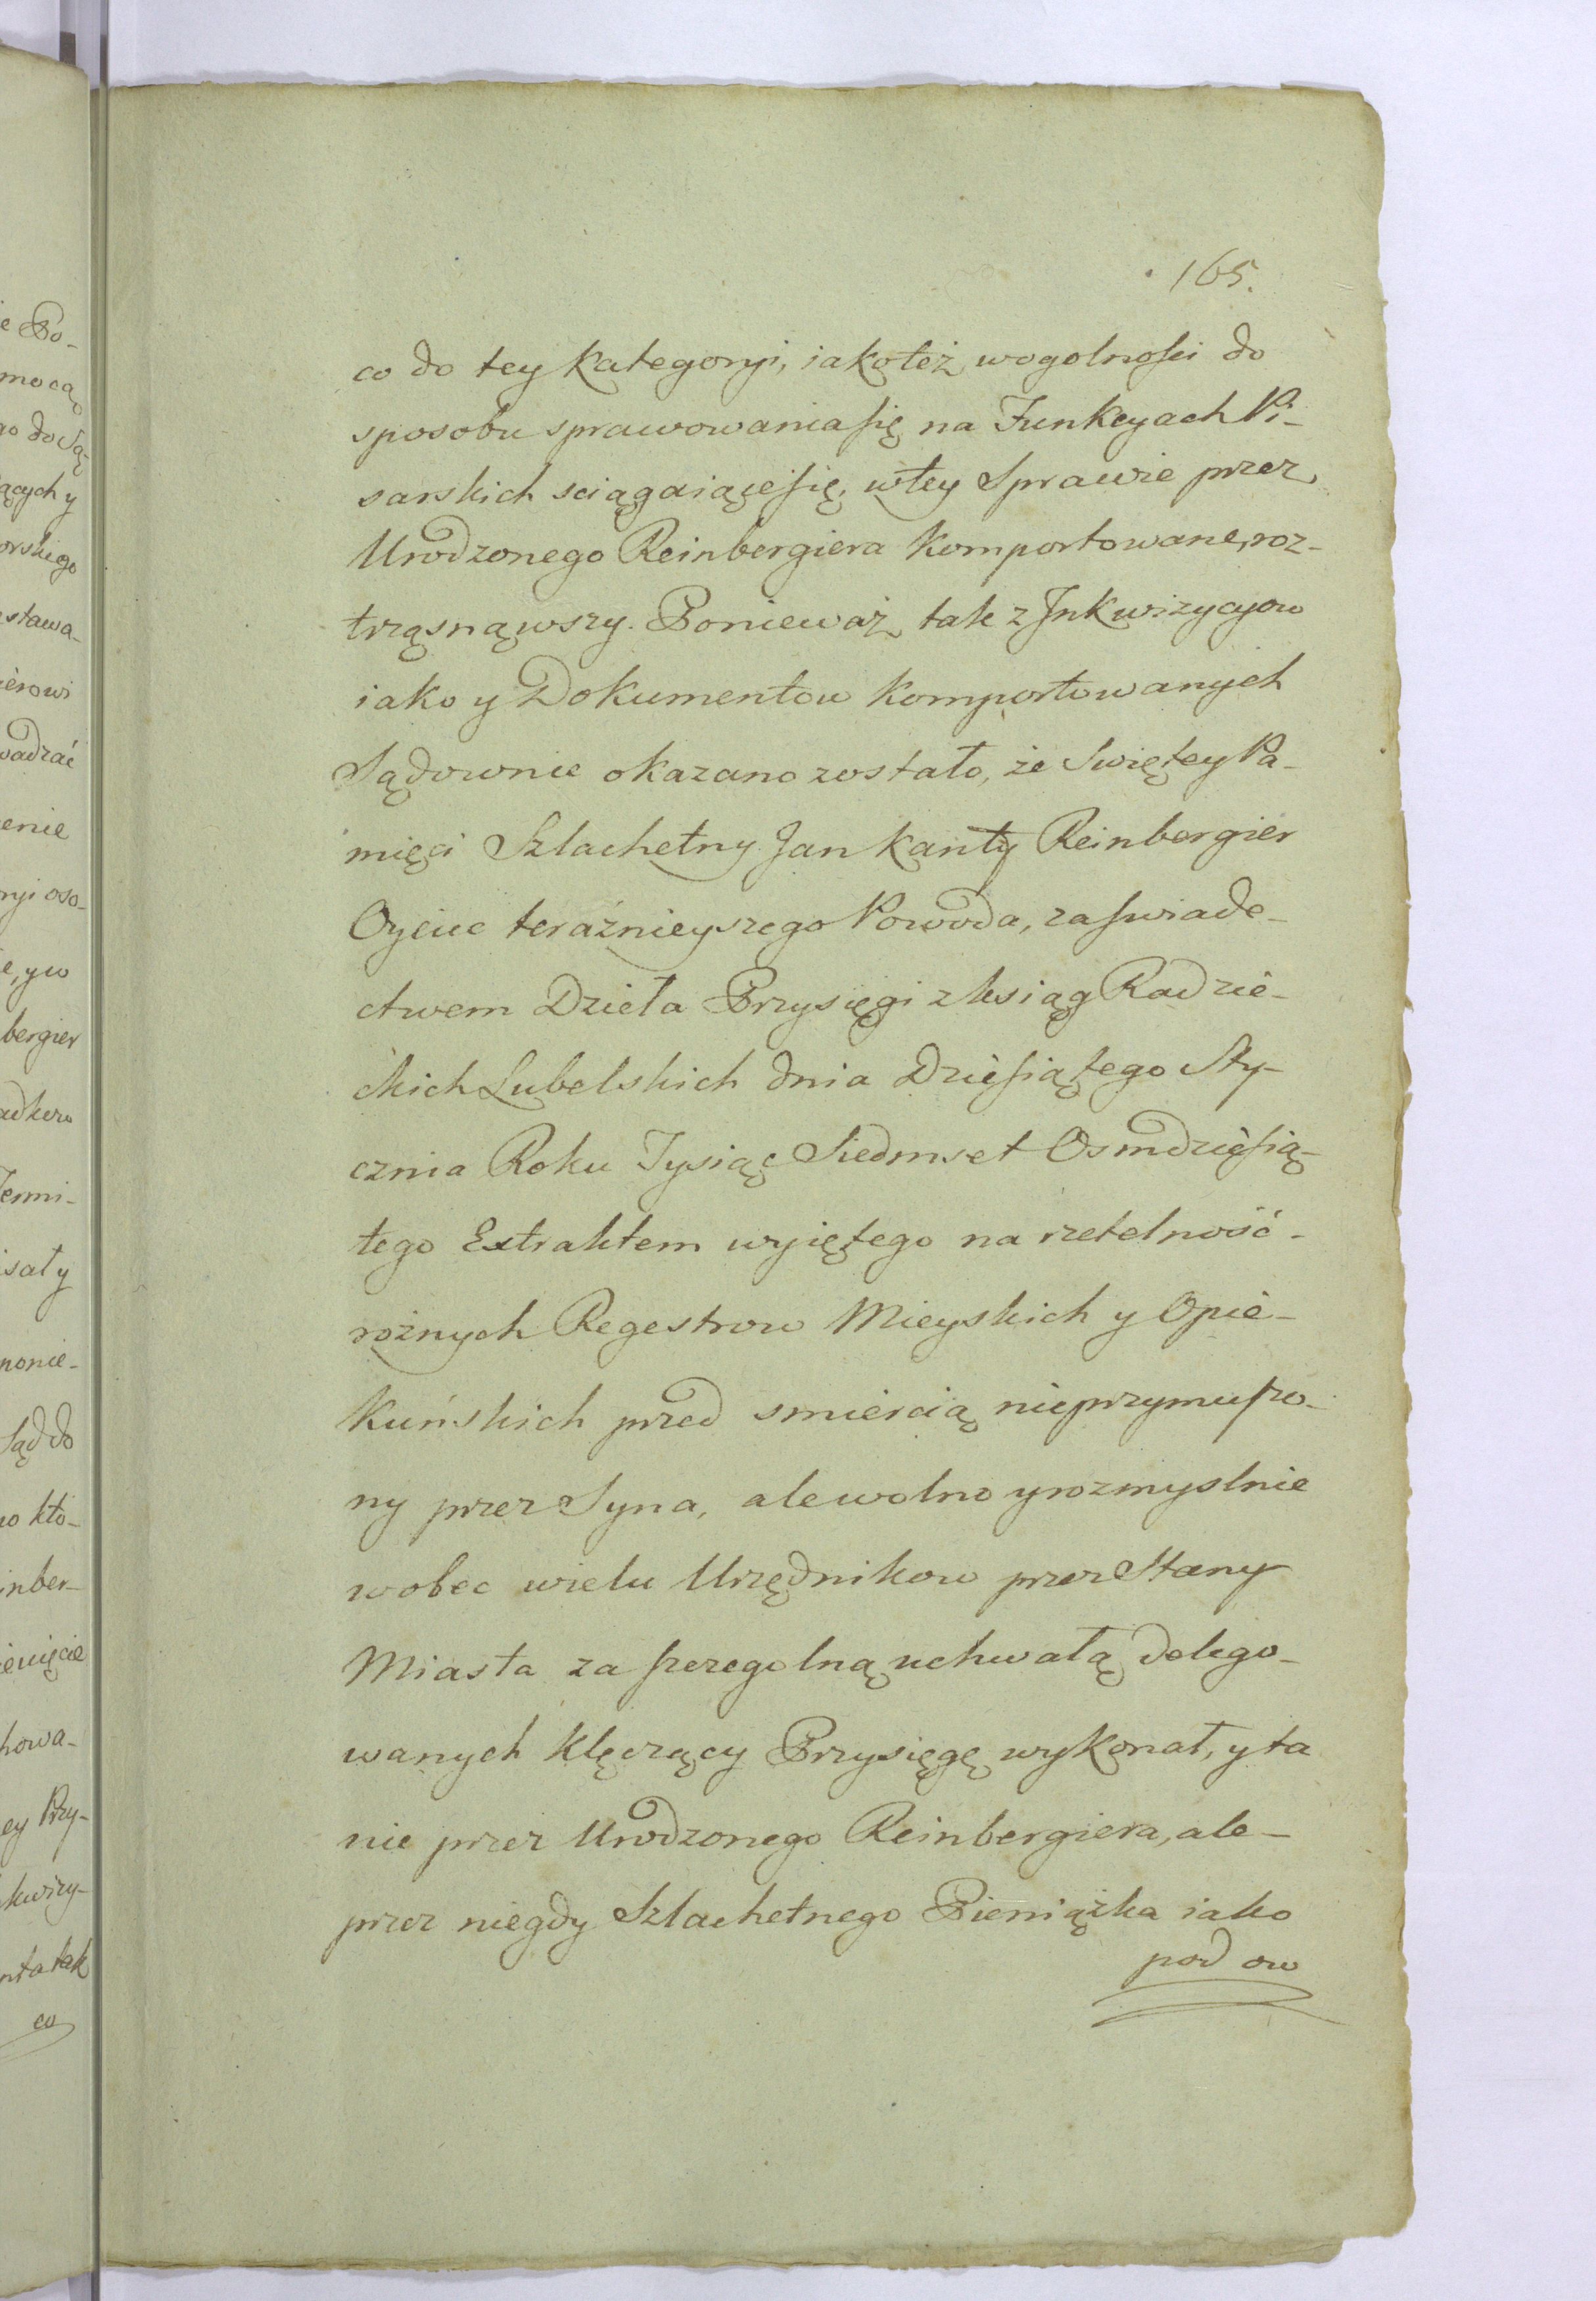 165.
co do tey Kategoryi, iakoteż wogolności do
sposobu sprawowania się na Funkcyach Pi-
sarskich sciągaiące się, wtey Sprawie przez
Urodzonego Reinbergiera Komportowane, roz-
trząsnąwszy. Ponieważ tak z Inkwizycyow
iako y Dokumentow Komportowanych
Sądownie okazano zostało, że Swiętey Pa-
mięci Szlachetny Jan Kanty Reinbergier
Oyciec teraźnieyszego Powoda, zaswiade-
ctwem Dzieła Przysięgi z ksiąg Radzie-
ckich Lubelskich dnia Dziesiątego Sty-
cznia Roku Tysiąc Siedmset Osmdziesią-
tego Extraktem wyiętego na rzetelność-
rożnych Regestrow Mieyskich y Opie-
Kuńskich przed smiercią nieprzymuszo-
ny przez Syna, ale wolno y rozmyslnie
wobec wielu Urzędnikow przez Stany
Miasta za szczegolną uchwałą delego-
wanych klęczący Przysięgę wykonał, y ta
nie przez Urodzonego Reinbergiera, ale-
przez niegdy Szlachetnego Pieniążka iako
pod ow
e Po-
mocą
go do Są
ących y
orskiego
stawa-
ierowi
wadzać
enie
ryi oso-
e, y w
bergier
adkow
Termi-
isał y
nonie-
Sąd do
no kto-
inber-
howa-
ey Przy-
kwizy-
nta tak
co